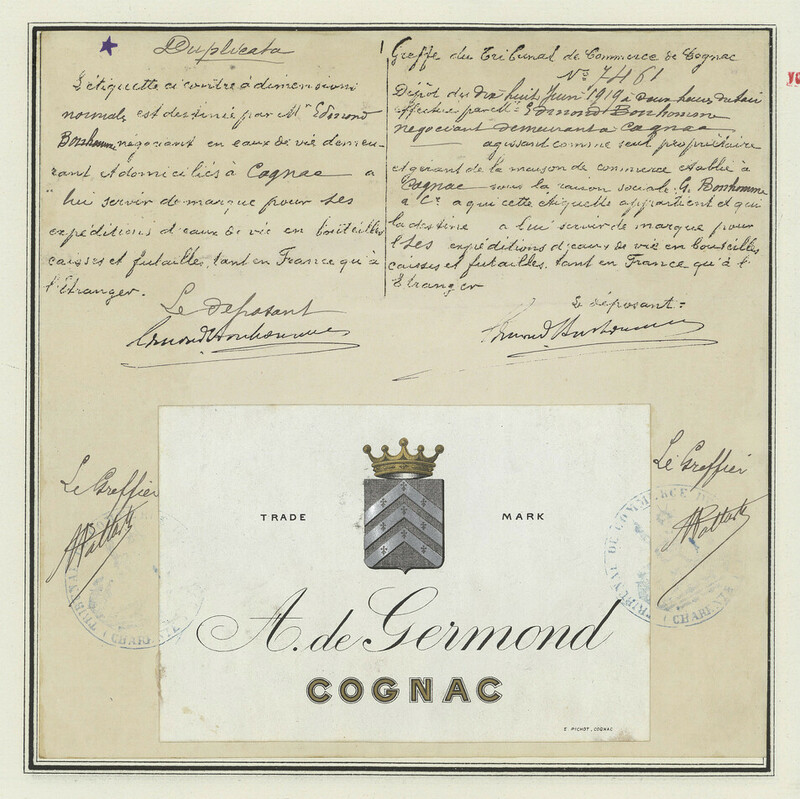 Duplicata
L'étiquette ci contre à dimensions
normales est destinée par Mr Edmond
Bonhomme négociant en eaux de vie demeu-
rant et domiciliés à Cognac a
lui servir de marque pour ses
expéditions d'eaux de vie en bouteilles
caisses et futailles, tant en France qu'à
l'Étranger.
Le déposant
Edmond Bonhomme
Greffe du Tribunal de Commerce de Cognac
No 7461
Dépôt du dix huit Juin 1919 à deux heures du soir
effectué par Mr Edmond Bonhomme
négociant demeurant à Cognac
agissant comme seul propriétaire
et gérant de la maison de commerce établie à
Cognac sous la raison sociale: G. Bonhomme
& Cie a qui cette étiquette appartient et qui
la destine a lui servir de marque pour
ses expéditions d'eaux de vie en bouteilles
caisses et futailles, tant en France qu'à l'
Etranger
Le déposant =
Edmond Bonhomme
Le Greffier
TRIBUNAL
(CHARENTE)
TRADE MARK
A. de Germond
COGNAC
E. PICHOT, COGNAC
Le Greffier
TRIBUNAL DE COMMERCE
(CHARENTE)